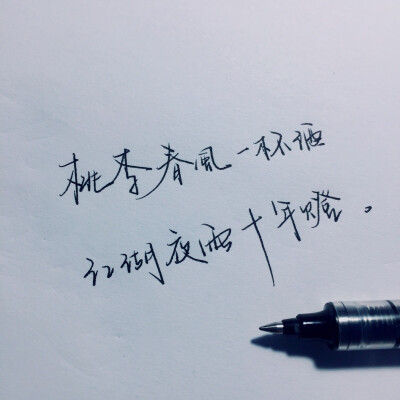 桃李春風一杯酒
江湖夜雨十年燈。